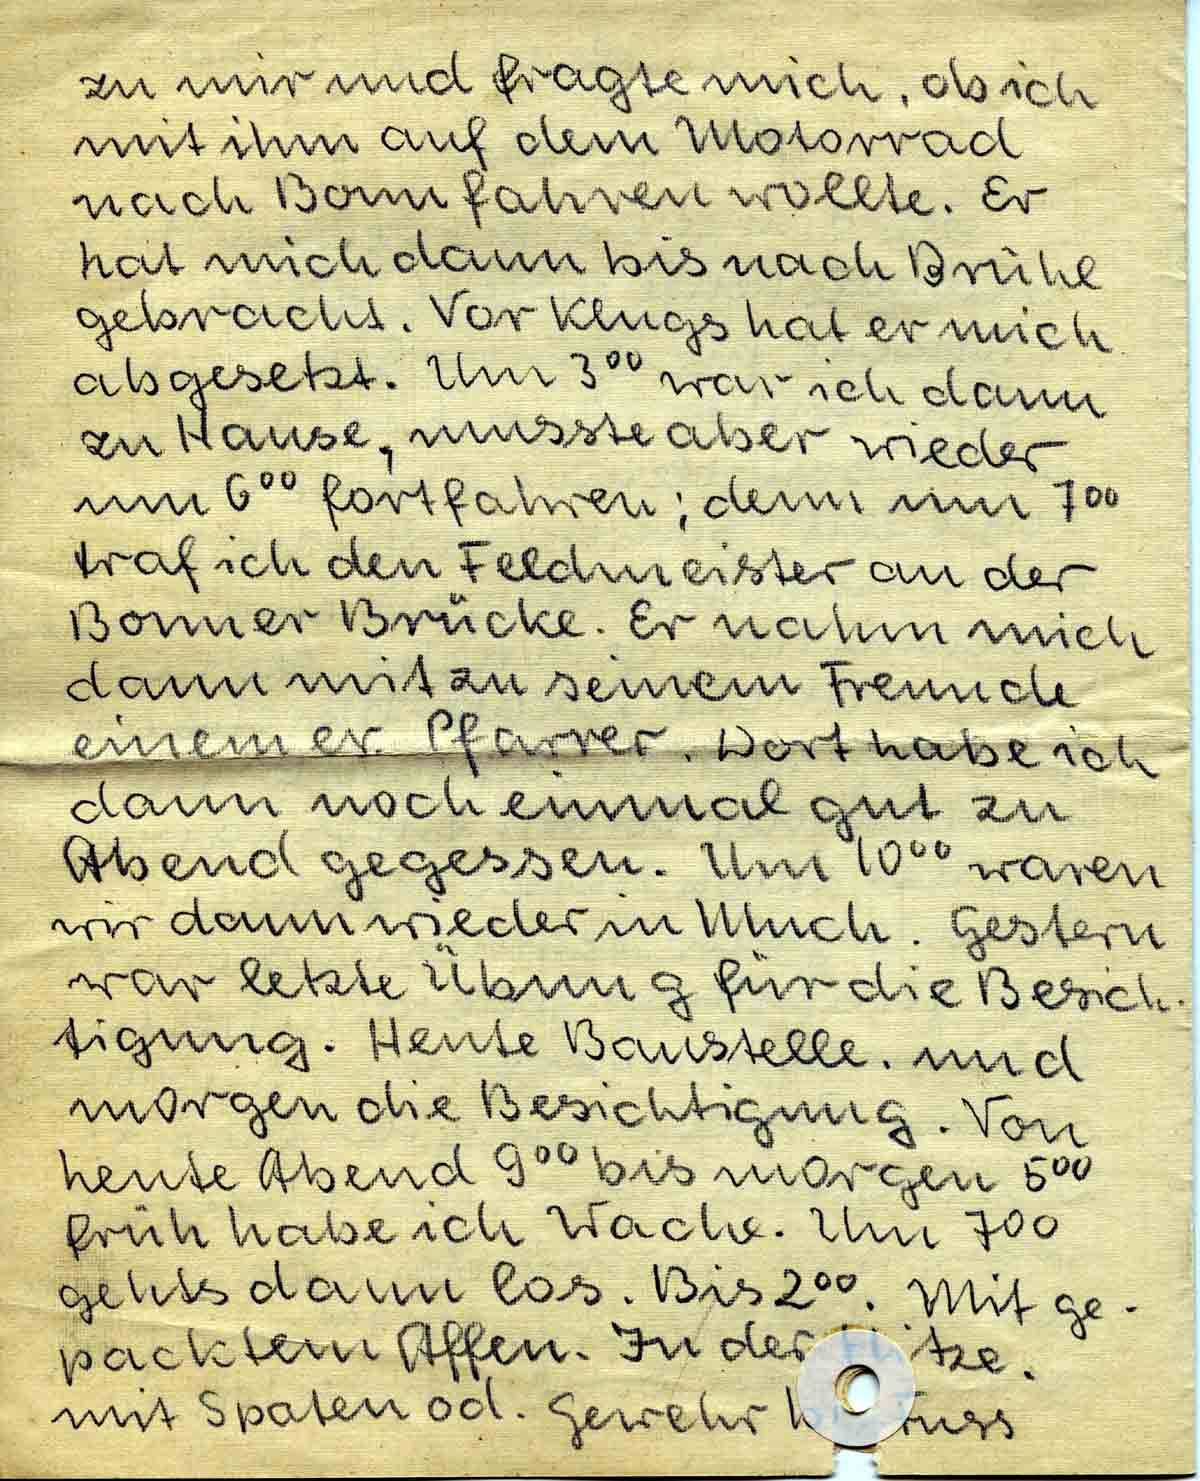 zu mir und fragte mich, ob ich
mit ihm auf dem Motorrad
nach Bonn fahren wollte. Er
hat mich dann bis nach Brühl
gebracht. Vor Klugs hat er mich
abgesetzt. Um 3⁰⁰ war ich dann
zu Hause, musste aber wieder
um 6⁰⁰ fortfahren; denn um 7⁰⁰
traf ich den Feldmeister an der
Bonner Brücke. Er nahm mich
dann mit zu seinem Freunde
einem ev. Pfarrer. Dort habe ich
dann noch einmal gut zu
Abend gegessen. Um 10⁰⁰ waren
wir dann wieder in Much. Gestern
war letzte Übung für die Besich-
tigung. Heute Baustelle. und
morgen die Besichtigung. Von
heute Abend 9⁰⁰ bis morgen 5⁰⁰
früh habe ich Wache. Um 700
gehts dann los. Bis 2⁰⁰. Mit ge-
packtem Affen. In der Hitze.
mit Spaten od. Gewehr